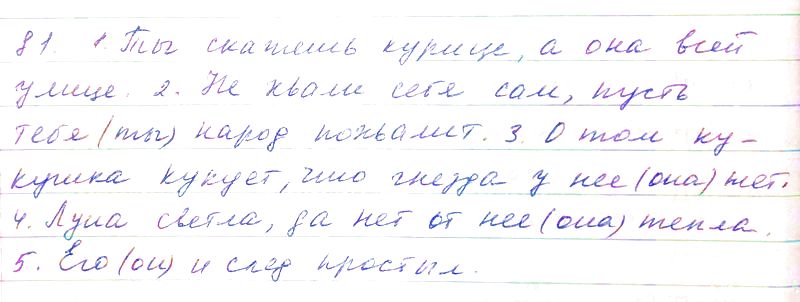 81. 1. Ты скажешь курице, а она всей
улице. 2. Не хвали себя сам, пусть
тебя (ты) народ похвалит. 3. О том ку-
кушка кукует, что гнезда у нее (она) нет.
4. Луна светла, да нет от нее (она) тепла.
5. Его (он) и след простыл.